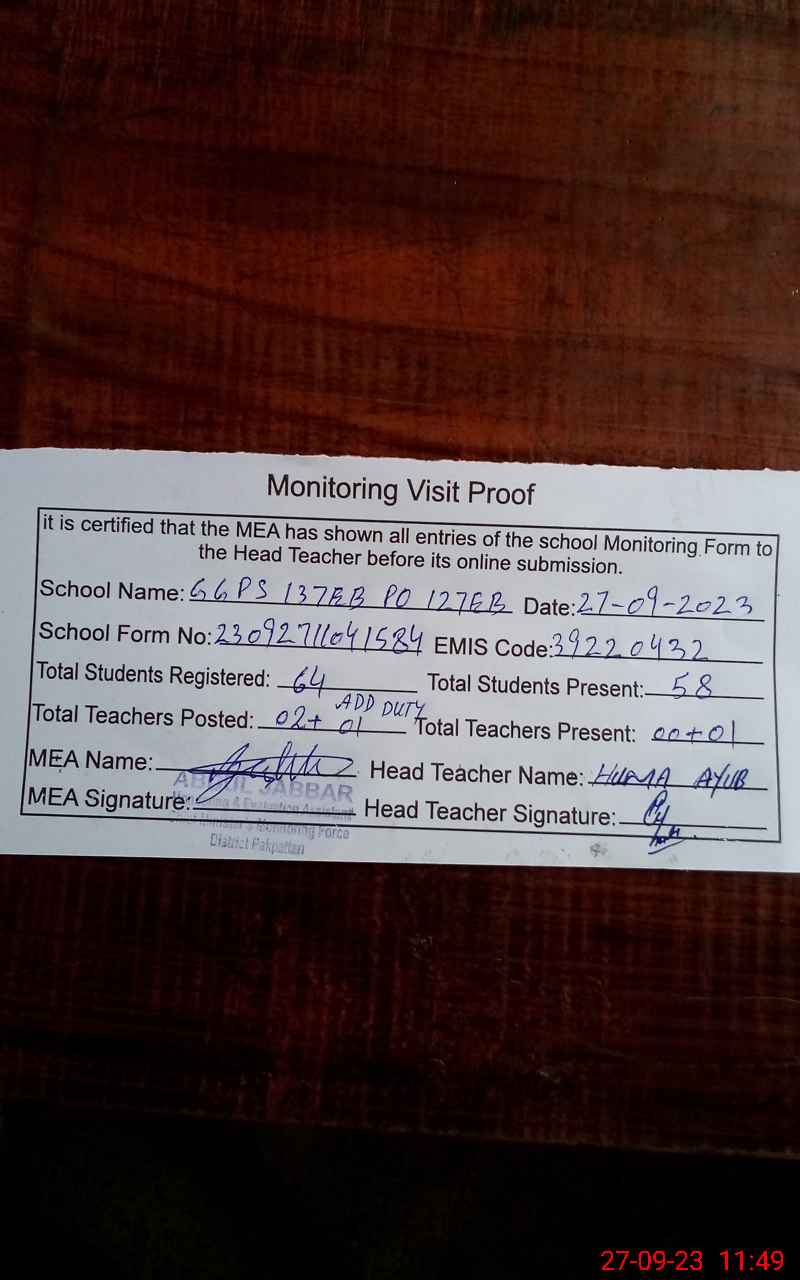 Monitoring Visit Proof
it is certified that the MEA has shown all entries of the school Monitoring Form to
the Head Teacher before its online submission.
School Name: GGPS 137EB PO 127EB Date: 27-09-2023
School Form No: 23092711041584 EMIS Code: 39220432
Total Students Registered: 64 Total Students Present: 58
ADD DUTY
Total Teachers Posted: 02+ 01 Total Teachers Present: 00+01
MEA Name: Head Teacher Name: HUMA AYUB
ABDUL JABBAR
MEA Signature: Head Teacher Signature:
Monitoring & Evaluation Assistant
Chief Minister's Monitoring Force
District Pakpattan
27-09-23 11:49